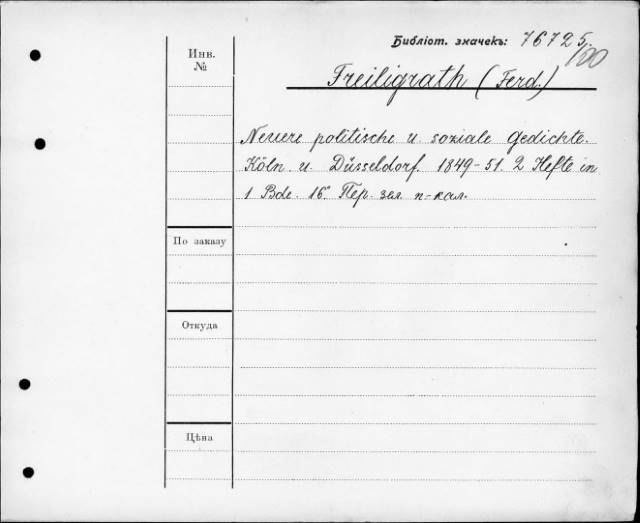 Библіот. значекъ: 76725/100
Инв. №
Freiligrath (Ferd.)
Neuere politische u. soziale Gedichte.
Köln u. Düsseldorf. 1849-51. 2 Hefte in
1 Bde. 16°. Пер. зел. п-кал.
По заказу
Откуда
Цѣна